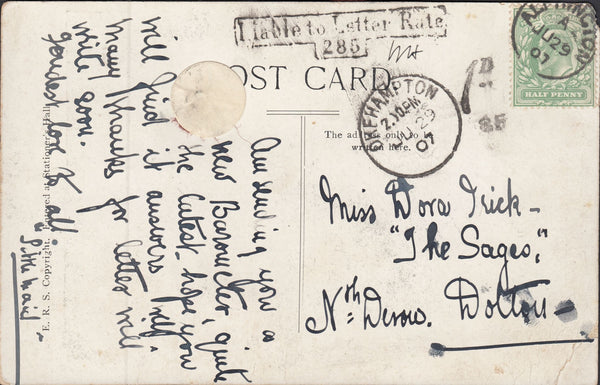 Liable to Letter Rate
285
POST CARD.
The address only to be
written here.
HALF PENNY
JU 29
07
OKEHAMPTON
2.30PM
29
07
1D
285
Miss Dora Trick -
"The Sages,"
Dolton -
Nth Devon.
Am sending you a
new Barometer, quite
the latest, hope you
will find it answers
Many thanks for letter will
write soon.
Fondest love to all.
E. R. S. Copyright. Entered at Stationers' Hall